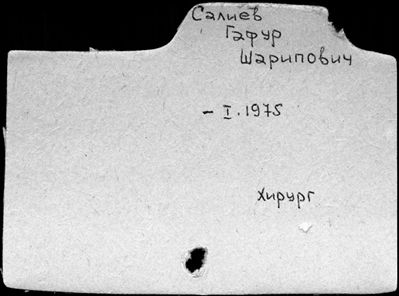 Салиев
Гафур
Шарипович
– I. 1975
хирург